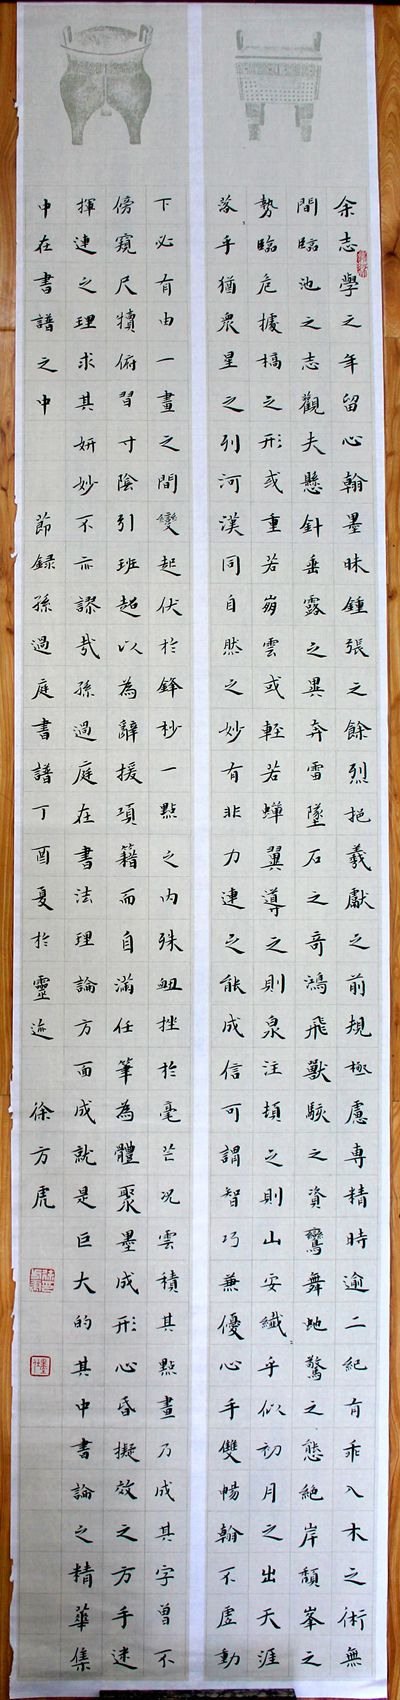 余志學之年留心翰墨昧鍾張之餘烈挹羲獻之前規極慮專精時逾二紀有乖入木之術無
間臨池之志觀夫懸針垂露之異奔雷墜石之奇鴻飛獸駭之資鸞舞虵驚之態絕岸頹峯之
勢臨危據槁之形或重若崩雲或輕若蟬翼導之則泉注頓之則山安纖乎似初月之出天涯
落乎猶衆星之列河漢同自然之妙有非力連之能成信可謂智巧兼優心手雙暢翰不虛動
下必有由一畫之間變起伏於鋒杪一點之內殊衄挫於毫芒況雲積其點畫乃成其字曾不
傍窺尺犢俯習寸陰引班超以為辭援項籍而自滿任筆為體聚墨成形心昏擬效之方手迷
揮連之理求其妍妙不亦謬哉孫過庭在書法理論方面成就是巨大的其中書論之精華集
中在書譜之中 節録孫過庭書譜丁酉夏於靈 徐方虎